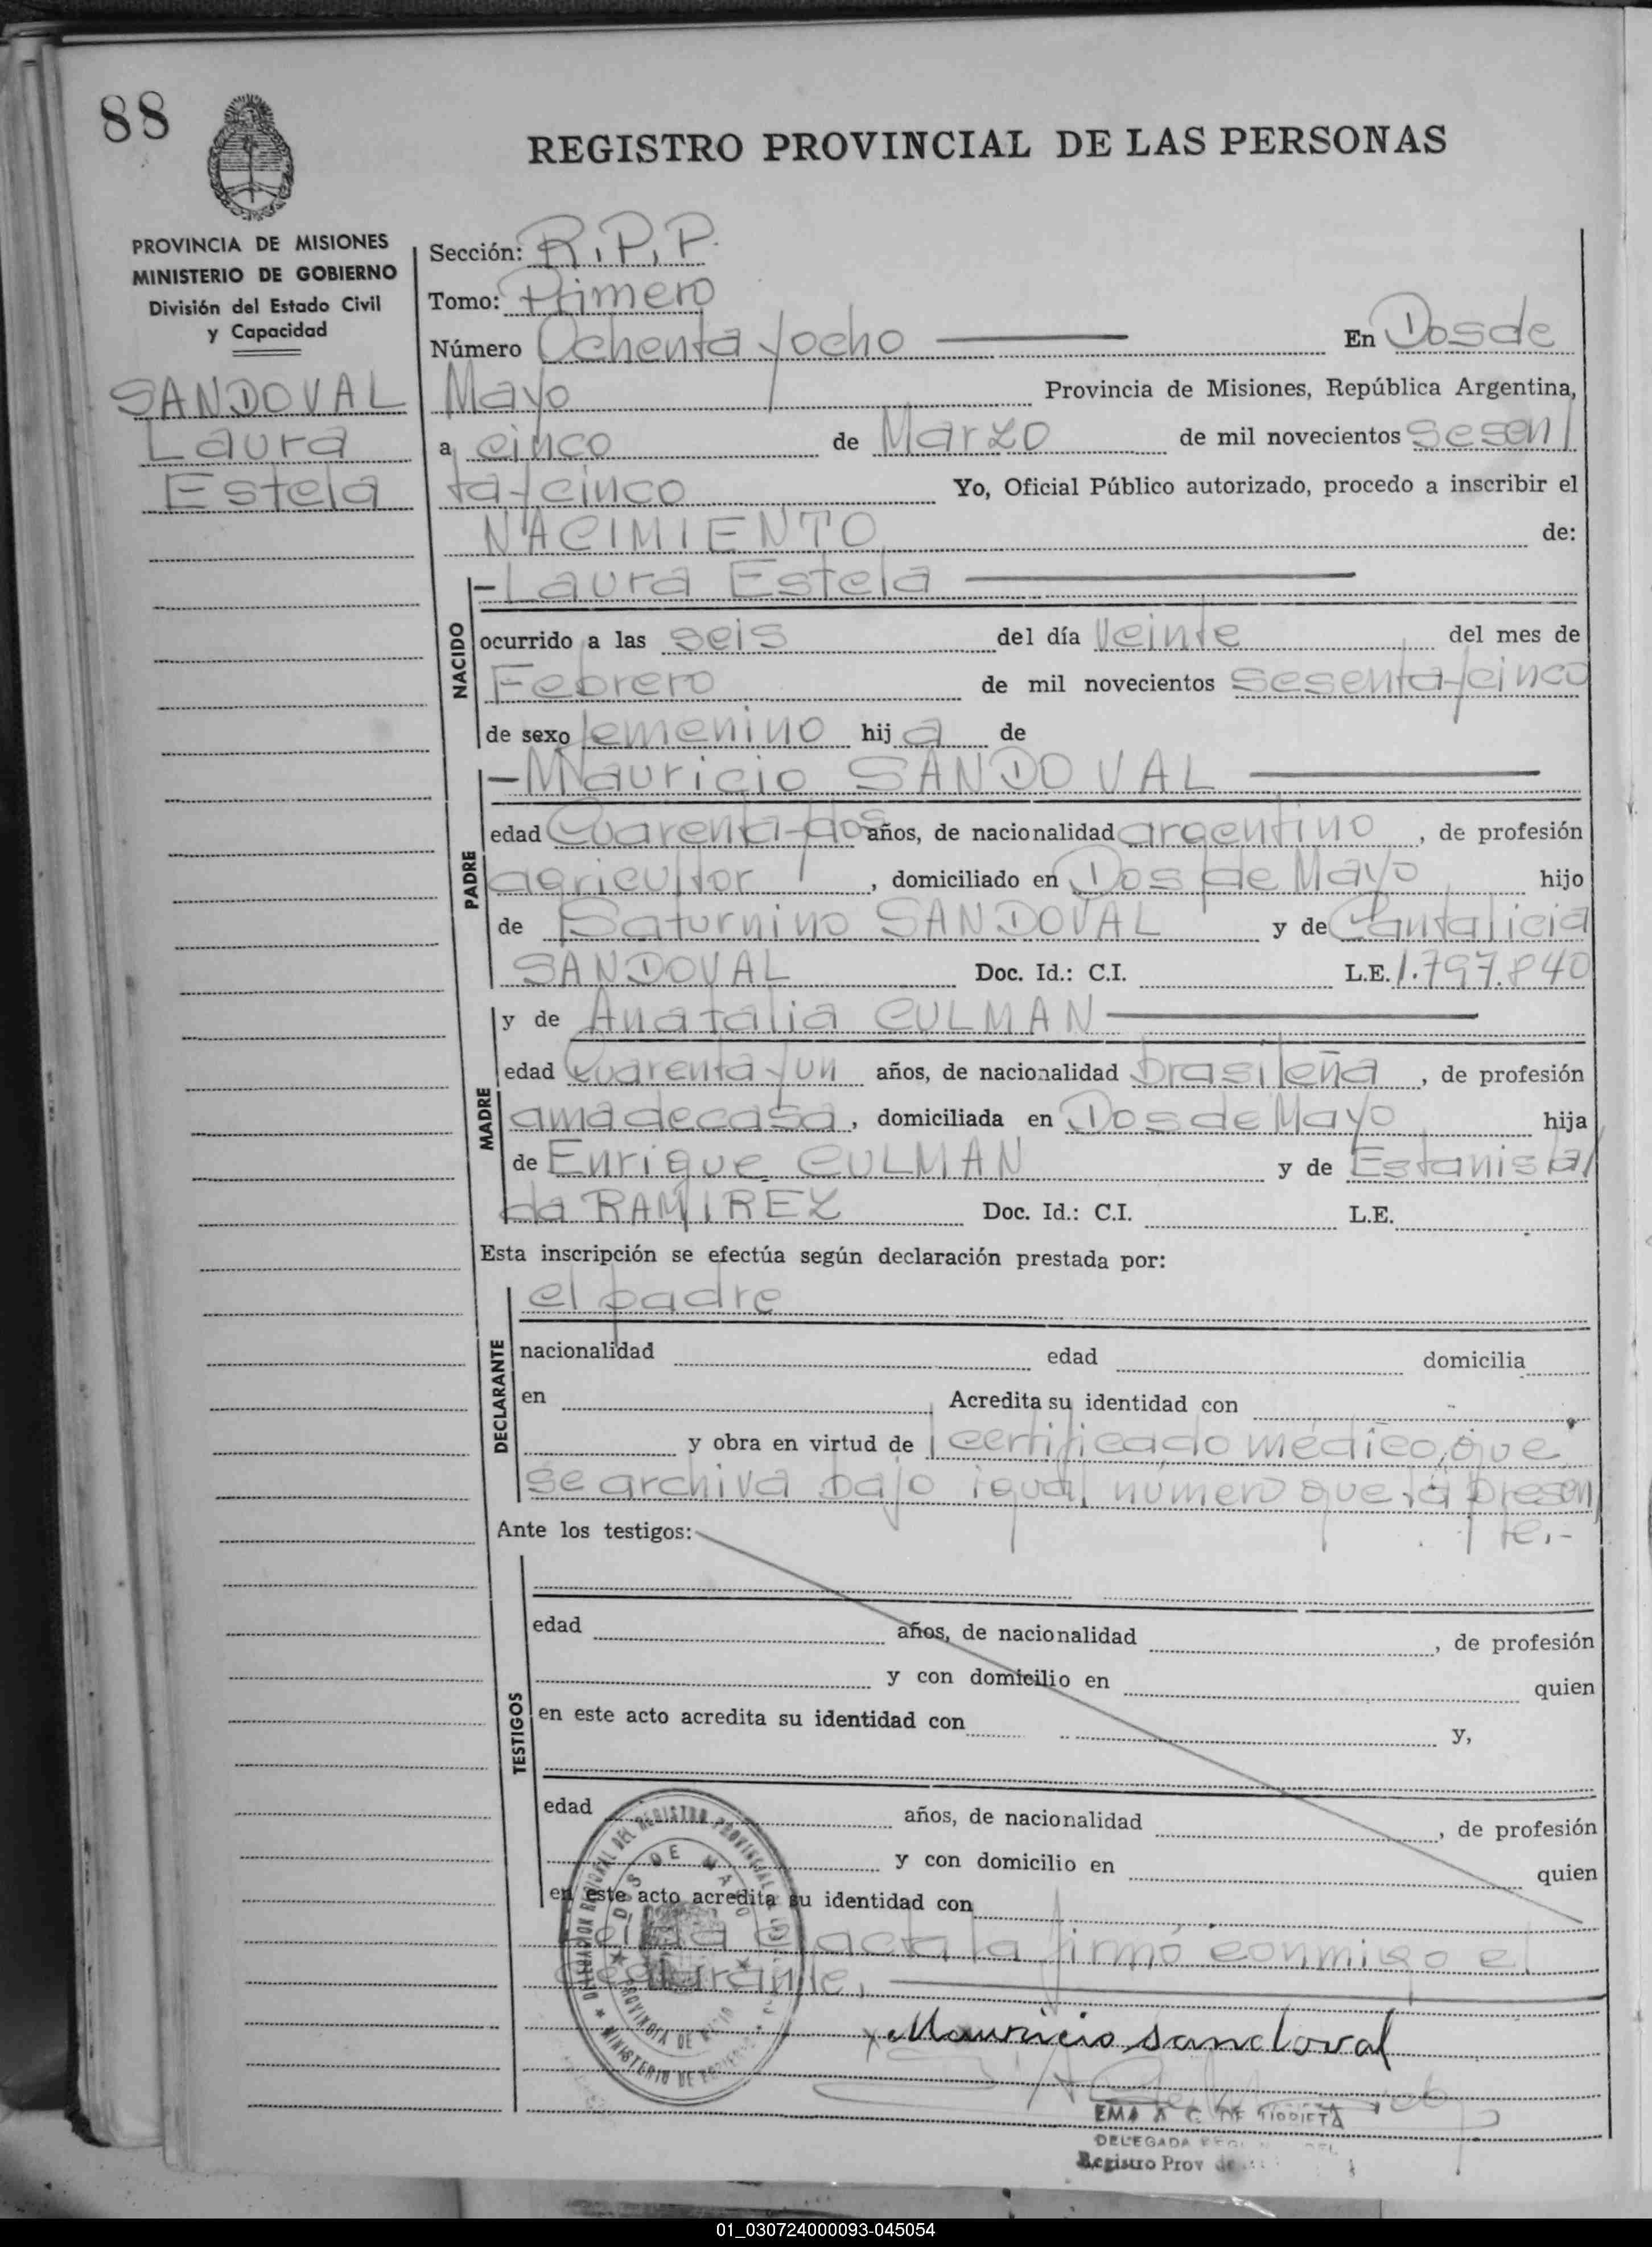 88
REGISTRO PROVINCIAL DE LAS PERSONAS
PROVINCIA DE MISIONES
MINISTERIO DE GOBIERNO
División del Estado Civil
y Capacidad
SANDOVAL
Laura
Estela
Sección: R.P.P.
Tomo: Primero
Número Ochenta y ocho En Dos de
Mayo Provincia de Misiones, República Argentina,
a cinco de Marzo de mil novecientos sesen
ta y cinco Yo, Oficial Público autorizado, procedo a inscribir el
NACIMIENTO de:
NACIDO
- Laura Estela
ocurrido a las seis del día veinte del mes de
Febrero de mil novecientos sesenta y cinco
de sexo femenino hij a de
PADRE
- Mauricio SANDOVAL
edad Cuarenta y dos años, de nacionalidad argentino, de profesión
agricultor, domiciliado en Dos de Mayo hijo
de Saturnino SANDOVAL y de Cantalicia
SANDOVAL Doc. Id.: C.I. L.E. 1.797.840
MADRE
y de Anatalia CULMAN
edad Cuarenta y un años, de nacionalidad brasileña, de profesión
ama de casa, domiciliada en Dos de Mayo hija
de Enrique CULMAN y de Estanisla
da RAMIREZ Doc. Id.: C.I. L.E.
Esta inscripción se efectúa según declaración prestada por:
DECLARANTE
el padre
nacionalidad edad domicilia
en Acredita su identidad con
y obra en virtud de certificado médico, que
se archiva bajo igual número que la presen
te.-
Ante los testigos:
TESTIGOS
edad años, de nacionalidad , de profesión
y con domicilio en quien
en este acto acredita su identidad con y,
edad años, de nacionalidad , de profesión
y con domicilio en quien
en este acto acredita su identidad con
Leída el acta la firmó conmigo el
declarante,
DELEGACION REGIONAL DEL REGISTRO PROVINCIAL
DOS DE MAYO
PROVINCIA DE
MINISTERIO DE
x Mauricio sandoval
EMA
DELEGADA
Registro Prov de
01_030724000093-045054